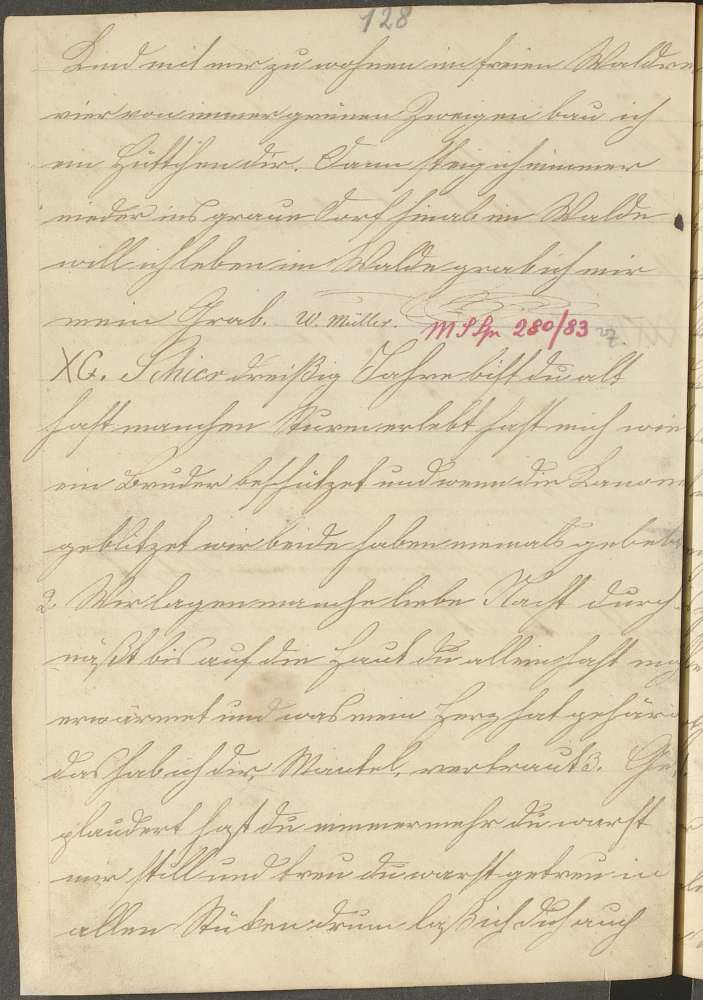 128
Kind mit mir zu wohnen im freien Waldre
vier von immer grünen Zweigen bau ich
ein Hüttchen dir. Dann steig ich nimmer
nieder ins graue Dorf hinab im Walde
will ich leben im Walde grab ich mir
mein Grab. W. Müller. 280/83
XC. Schier dreißig Jahre bist du alt
hast manchen Sturm erlebt hast mich wie
ein Bruder beschützet und wenn die Kanonen
geblitzet wir beide haben niemals gebebt
2. Wir lagen manche liebe Nacht durch
näßt bis auf die Haut du allein hast mich
erwärmet und was mein Herz hat gehär
das hab ich dir, Mantel, vertraut 3. Ge
plaudert hast du nimmermehr du warst
mir still und treu du warst getreu in
allen Stüken drum laß ich dich auch